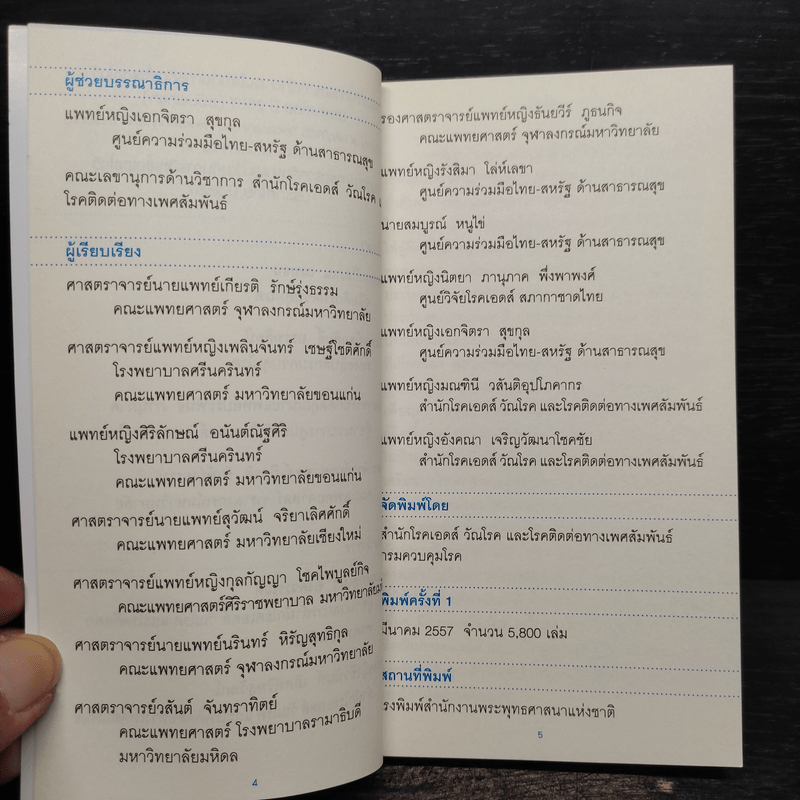 ผู้ช่วยบรรณาธิการ
แพทย์หญิงเอกจิตรา สุขกุล
ศูนย์ความร่วมมือไทย-สหรัฐ ด้านสาธารณสุข
คณะเลขานุการด้านวิชาการ สำนักโรคเอดส์ วัณโรค
โรคติดต่อทางเพศสัมพันธ์
ผู้เรียบเรียง
ศาสตราจารย์นายแพทย์เกียรติ รักษ์รุ่งธรรม
คณะแพทยศาสตร์ จุฬาลงกรณ์มหาวิทยาลัย
ศาสตราจารย์แพทย์หญิงเพลินจันทร์ เชษฐ์โชติศักดิ์
โรงพยาบาลศรีนครินทร์
คณะแพทยศาสตร์ มหาวิทยาลัยขอนแก่น
แพทย์หญิงศิริลักษณ์ อนันต์ณัฐศิริ
โรงพยาบาลศรีนครินทร์
คณะแพทยศาสตร์ มหาวิทยาลัยขอนแก่น
ศาสตราจารย์นายแพทย์สุวัฒน์ จริยาเลิศศักดิ์
คณะแพทยศาสตร์ มหาวิทยาลัยเชียงใหม่
ศาสตราจารย์แพทย์หญิงกุลกัญญา โชคไพบูลย์กิจ
คณะแพทยศาสตร์ศิริราชพยาบาล
ศาสตราจารย์นายแพทย์นรินทร์ หิรัญสุทธิกุล
คณะแพทยศาสตร์ จุฬาลงกรณ์มหาวิทยาลัย
ศาสตราจารย์วสันต์ จันทราทิตย์
คณะแพทยศาสตร์ โรงพยาบาลรามาธิบดี
มหาวิทยาลัยมหิดล
4
รองศาสตราจารย์แพทย์หญิงธันยวีร์ ภูธนกิจ
คณะแพทยศาสตร์ จุฬาลงกรณ์มหาวิทยาลัย
แพทย์หญิงรังสิมา โล่ห์เลขา
ศูนย์ความร่วมมือไทย-สหรัฐ ด้านสาธารณสุข
นายสมบูรณ์ หนูไข่
ศูนย์ความร่วมมือไทย-สหรัฐ ด้านสาธารณสุข
แพทย์หญิงนิตยา ภานุภาค พึ่งพาพงศ์
ศูนย์วิจัยโรคเอดส์ สภากาชาดไทย
แพทย์หญิงเอกจิตรา สุขกุล
ศูนย์ความร่วมมือไทย-สหรัฐ ด้านสาธารณสุข
แพทย์หญิงมณฑินี วสันติอุปโภคากร
สำนักโรคเอดส์ วัณโรค และโรคติดต่อทางเพศสัมพันธ์
แพทย์หญิงอังคณา เจริญวัฒนาโชคชัย
สำนักโรคเอดส์ วัณโรค และโรคติดต่อทางเพศสัมพันธ์
จัดพิมพ์โดย
สำนักโรคเอดส์ วัณโรค และโรคติดต่อทางเพศสัมพันธ์
กรมควบคุมโรค
พิมพ์ครั้งที่ 1
มีนาคม 2557 จำนวน 5,800 เล่ม
สถานที่พิมพ์
โรงพิมพ์สำนักงานพระพุทธศาสนาแห่งชาติ
5